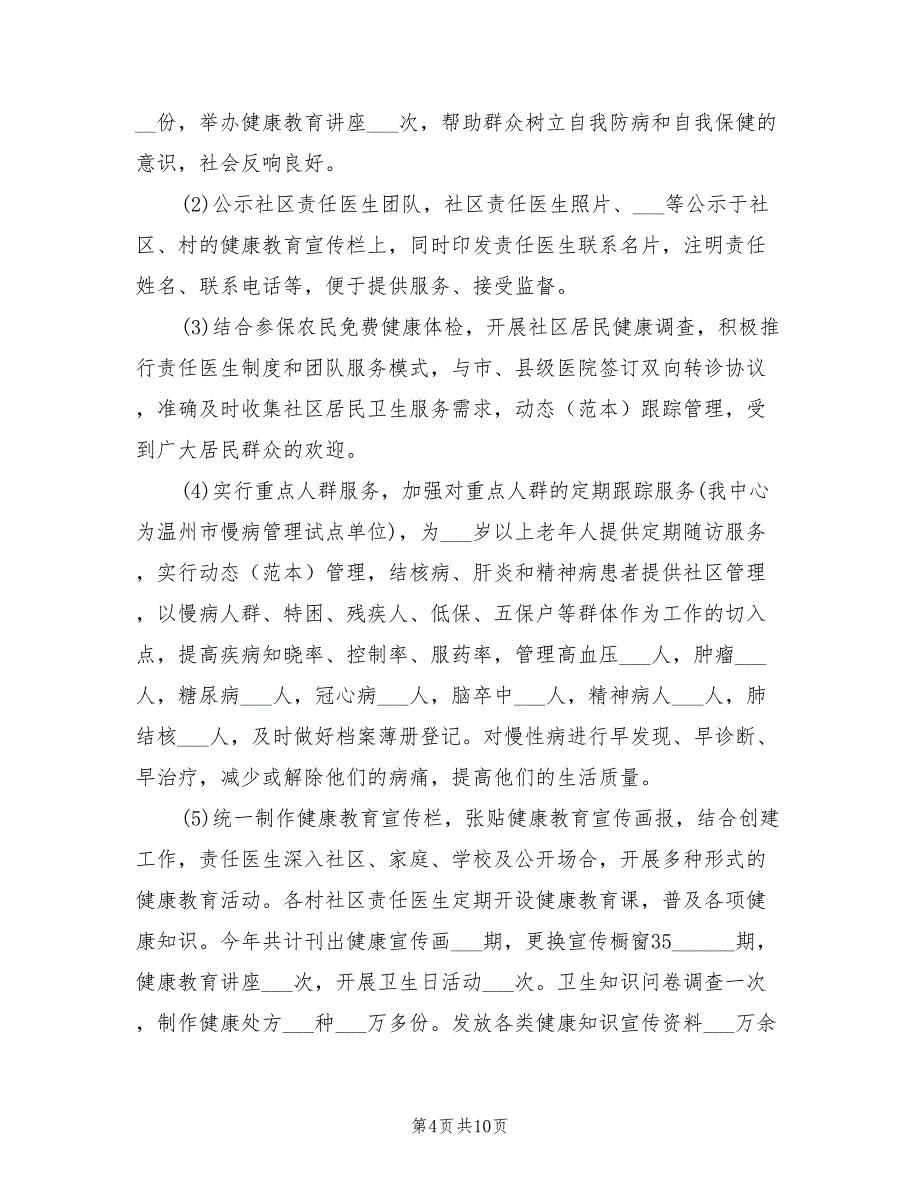 __份，举办健康教育讲座___次，帮助群众树立自我防病和自我保健的
意识，社会反响良好。
(2)公示社区责任医生团队，社区责任医生照片、___等公示于社
区、村的健康教育宣传栏上，同时印发责任医生联系名片，注明责任
姓名、联系电话等，便于提供服务、接受监督。
(3)结合参保农民免费健康体检，开展社区居民健康调查，积极推
行责任医生制度和团队服务模式，与市、县级医院签订双向转诊协议
，准确及时收集社区居民卫生服务需求，动态（范本）跟踪管理，受
到广大居民群众的欢迎。
(4)实行重点人群服务，加强对重点人群的定期跟踪服务(我中心
为温州市慢病管理试点单位)，为___岁以上老年人提供定期随访服务
，实行动态（范本）管理，结核病、肝炎和精神病患者提供社区管理
，以慢病人群、特困、残疾人、低保、五保户等群体作为工作的切入
点，提高疾病知晓率、控制率、服药率，管理高血压___人，肿瘤___
人，糖尿病___人，冠心病___人，脑卒中___人，精神病人___人，肺
结核___人，及时做好档案薄册登记。对慢性病进行早发现、早诊断、
早治疗，减少或解除他们的病痛，提高他们的生活质量。
(5)统一制作健康教育宣传栏，张贴健康教育宣传画报，结合创建
工作，责任医生深入社区、家庭、学校及公开场合，开展多种形式的
健康教育活动。各村社区责任医生定期开设健康教育课，普及各项健
康知识。今年共计刊出健康宣传画___期，更换宣传橱窗35______期，
健康教育讲座___次，开展卫生日活动___次。卫生知识问卷调查一次
，制作健康处方___种___万多份。发放各类健康知识宣传资料___万余
第4页共10页